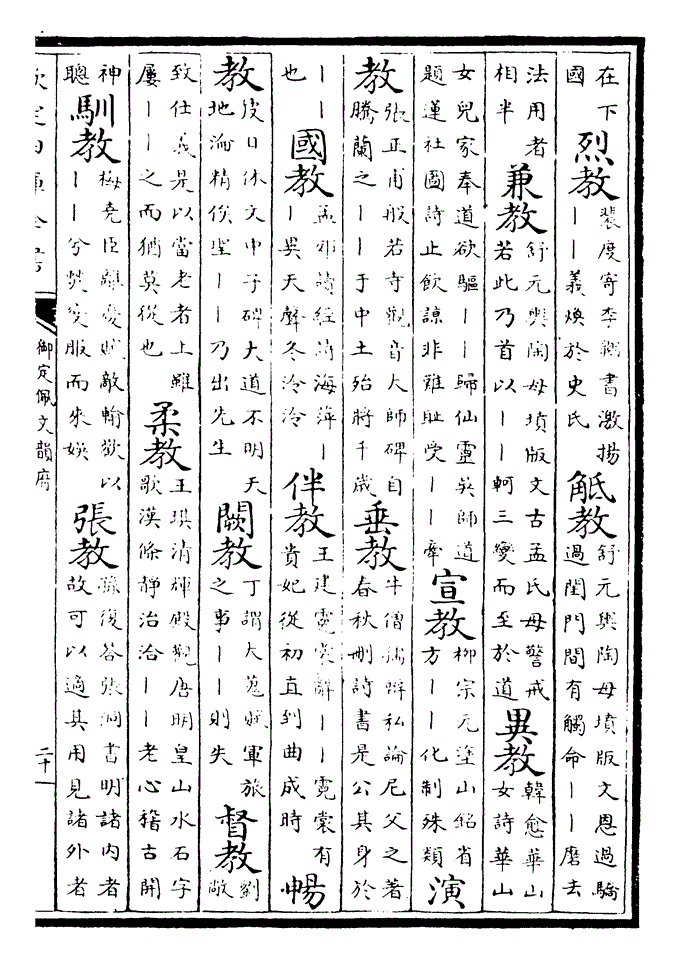 在下國烈教裴度寄李翺書激揚——義煥於史氏觝教舒元輿陶母墳版文恩過驕過閨門間有觸命——磨去
法用者相半兼教舒元輿陶母墳版文古孟氏母警戒若此乃首以——軻三變而至於道異教韓愈華山女詩華山
女兒家奉道欲驅——歸仙靈吳師道題蓮社圖詩止飲諒非難耻受——牽宣教柳宗元塗山銘省方——化制殊類演
教張正甫般若寺觀音大師碑自騰蘭之——于中土殆將千歲垂教牛僧孺辯私論尼父之著春秋刪詩書是公其身於
——也國教孟郊讀經詩海萍——異天聲冬泠泠伴教王建霓裳辭——霓裳有貴妃從初直到曲成時暢
教皮日休文中子碑大道不明天地淪精俟聖——乃出先生闕教丁謂大蒐賦軍旅之事——則失督教劉敞
致仕義是以當老者上雖屢——之而猶莫從也柔教王琪清輝殿觀唐明皇山水石字歌漢條靜治洽——老心稽古開
神聰馴教梅堯臣離憂賦敵輸歡以——兮受服而來娛張教孫復答張洞書明諸内者故可以適其用見諸外者
欽定四庫全書
御定佩文韻府
二十